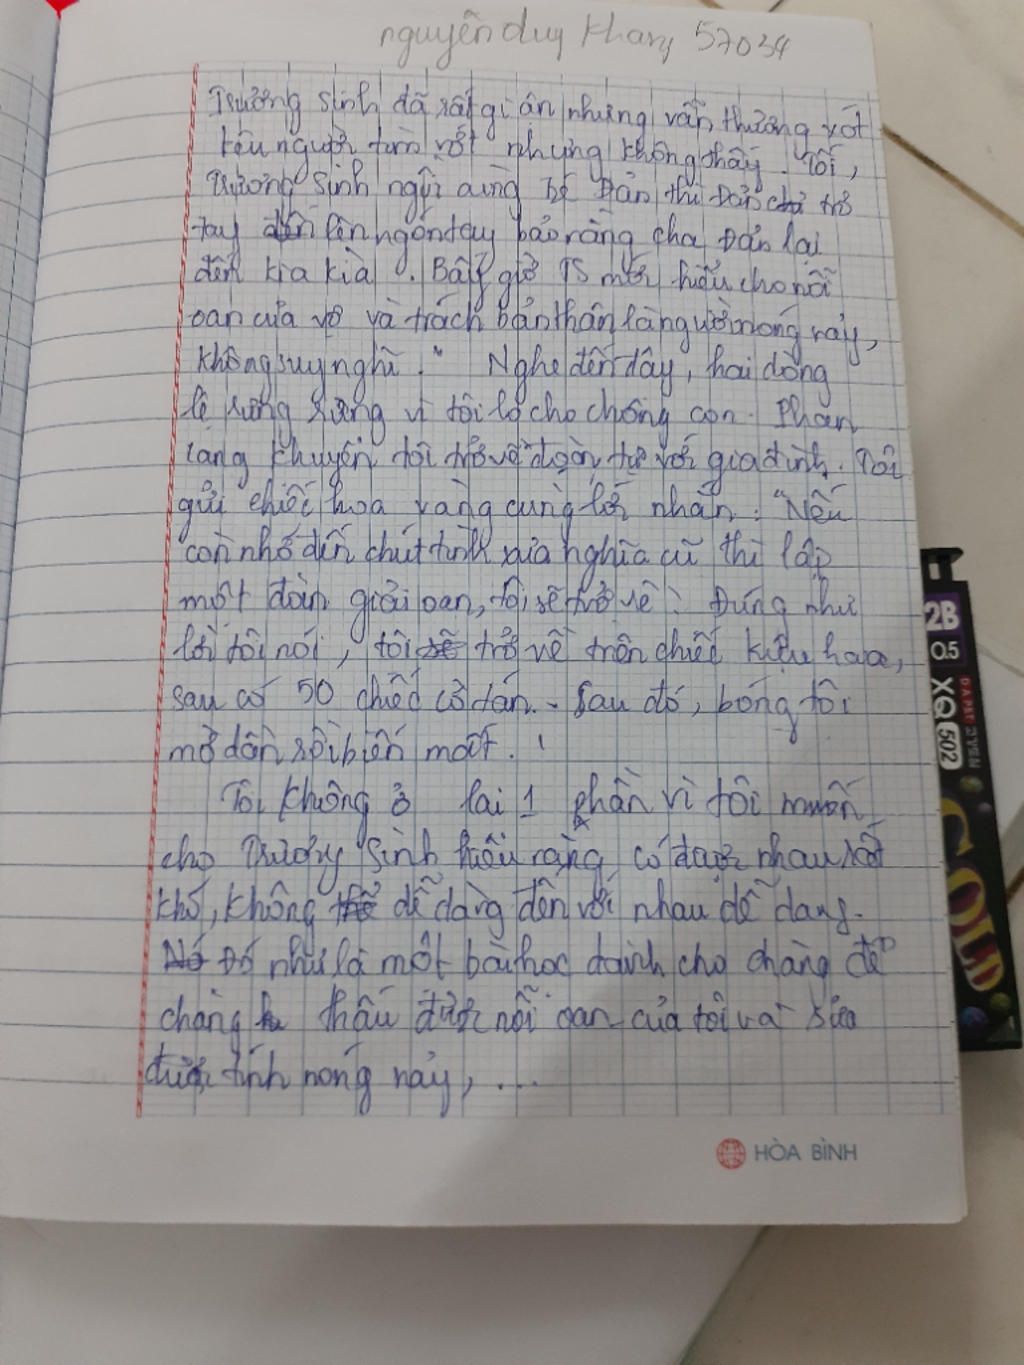 nguyễn duy Khang 57034
Trương Sinh đã rất giận nhưng vẫn thương xót
kêu người tìm vớt nhưng không thấy. Tối,
Trương Sinh ngồi cùng bé Đản thì Đản chỉ trỏ
tay lên ngón tay bảo rằng cha Đản lại
đến kia kìa. Bấy giờ TS mới hiểu cho nỗi
oan của vợ và trách bản thân là người nóng nảy,
không suy nghĩ." Nghe đến đây, hai dòng
lệ rưng rưng vì tôi lo cho chồng con. Phan
Lang khuyên tôi trở về đoàn tụ với gia đình. Tôi
gửi chiếc hoa vàng cùng lời nhắn: "Nếu
còn nhớ đến chút tình xưa nghĩa cũ thì lập
một đàn giải oan, tôi sẽ trở về". Đúng như
lời tôi nói, tôi sẽ trở về trên chiếc kiệu hoa,
sau có 50 chiếc cờ tán. Sau đó, bóng tôi
mờ dần rồi biến mất.
Tôi không ở lại 1 phần vì tôi muốn
cho Trương Sinh hiểu rằng có được nhau rất
khó, không thể dễ dàng đến với nhau dễ dang.
Nó Đó như là một bài học dành cho chàng để
chàng thấu được nỗi oan của tôi và sửa
được tính nóng nảy, ...
HÒA BÌNH
2B
0.5
XQ 502
GOLD